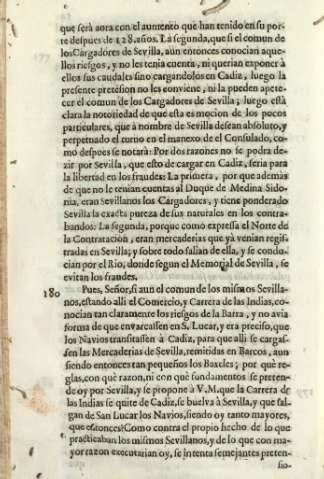 que serà aora con el aumento que han tenido en su por-
te despues de 128. años. La segunda, que si el comun de
los Cargadores de Sevilla, aun entonces conocian aque-
llos riesgos, y no les tenia cuenta, ni querian exponer à
ellos sus caudales sino cargandolos en Cadiz, luego la
presente pretesion no les conviene, ni la pueden apete-
cer el comun de los Cargadores de Sevilla; luego està
clara la notoriedad de que esta es mocion de los pocos
particulares, que à nombre de Sevilla desean absoluto, y
perpetuado el turno en el manexo de el Consulado, co-
mo despues se notarà: Por dos razones no se podra de-
zir por Sevilla, que esto de cargar en Cadiz, seria para
la libertad en los fraudes: La primera, por que además
de que no le tenian cuentas al Duque de Medina Sido-
nia, eran Sevillanos los Cargadores, y tiene ponderado
Sevilla la exacta pureza de sus naturales en los contra-
bandos: La segunda, porque como expressa el Norte de
la Contratacion, eran mercaderias que yà venian regis-
tradas en Sevilla; y sobre todo salian de ella, y se condu-
cian por el Rio, donde segun el Memorial de Sevilla, se
evitan los fraudes.
180 Pues, Señor, si aun el comun de los mismos Sevilla-
nos, estando alli el Comercio, y Carrera de las Indias, co-
nocian tan claramente los riesgos de la Barra, y no avia
forma de que envarcassen en S. Lucar, y era preciso, que
los Navios transitassen à Cadiz, para que alli se cargas-
sen las Mercaderias de Sevilla, remitidas en Barcos, aun
siendo entonces tan pequeños los Baxeles; por què re-
glas, con què razon, ni con què fundamentos se preten-
de oy por Sevilla, y se propone à V.M. que la Carrera de
las Indias se quite de Cadiz, se buelva à Sevilla, y que sal-
gan de San Lucar los Navios, siendo oy tanto mayores,
que entonces? Como contra el propio hecho de lo que
practicaban los mismos Sevillanos, y de lo que con ma-
yor razon executarian oy, se intenta semejantes preten-
sio-